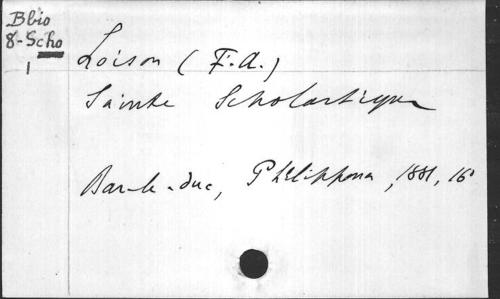 Bbio
8-Scho
1
Loison (F.A.)
Sainte Scholastique
Bar-le-duc, Philippona, 1881, 16°